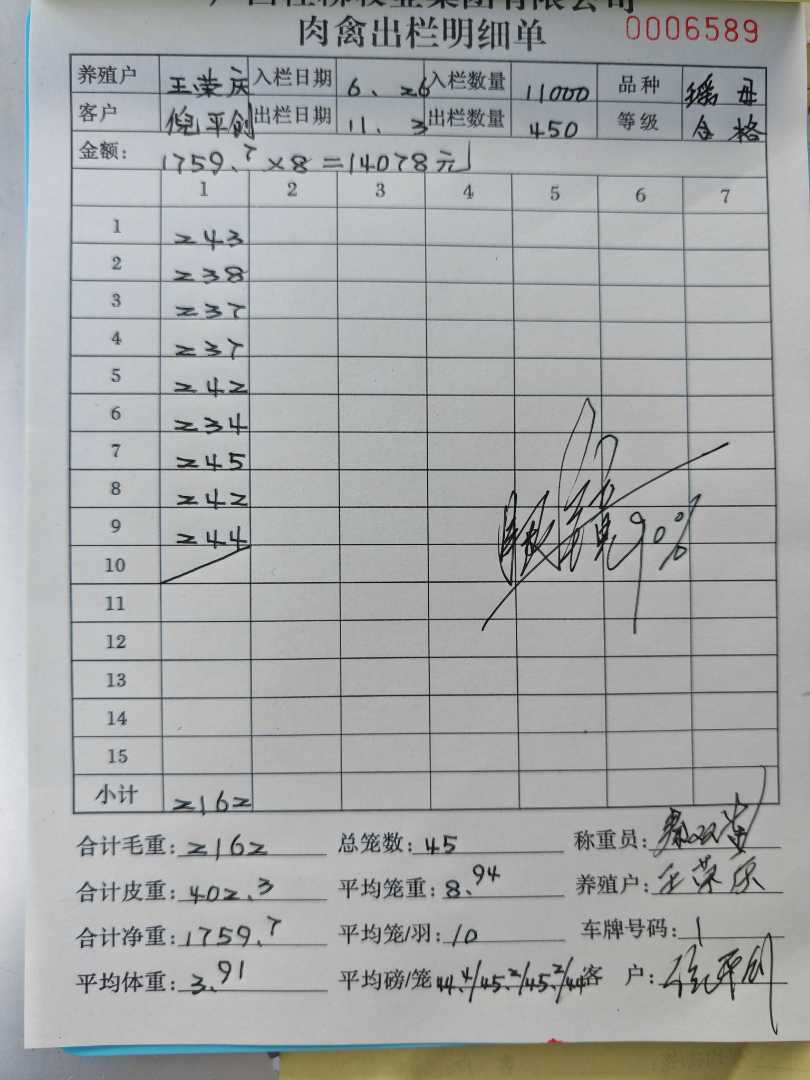 肉禽出栏明细单 0006589
养殖户 王荣庆 入栏日期 6、26 入栏数量 11000 品种 瑶母
客户 倪平创 出栏日期 11、3 出栏数量 450 等级 合格
金额: 1759.7×8=14078元
1 2 3 4 5 6 7
1 243
2 238
3 237
4 237
5 242
6 234
7 245
8 242
9 244
10
11
12
13
14
15
小计 2162
90%
合计毛重: 2162 总笼数: 45 称重员:
合计皮重: 402.3 平均笼重: 8.94 养殖户: 王荣庆
合计净重: 1759.7 平均笼/羽: 10 车牌号码: 1
平均体重: 3.91 平均磅/笼 44.4/45.2/45.2/44 客户: 倪平创